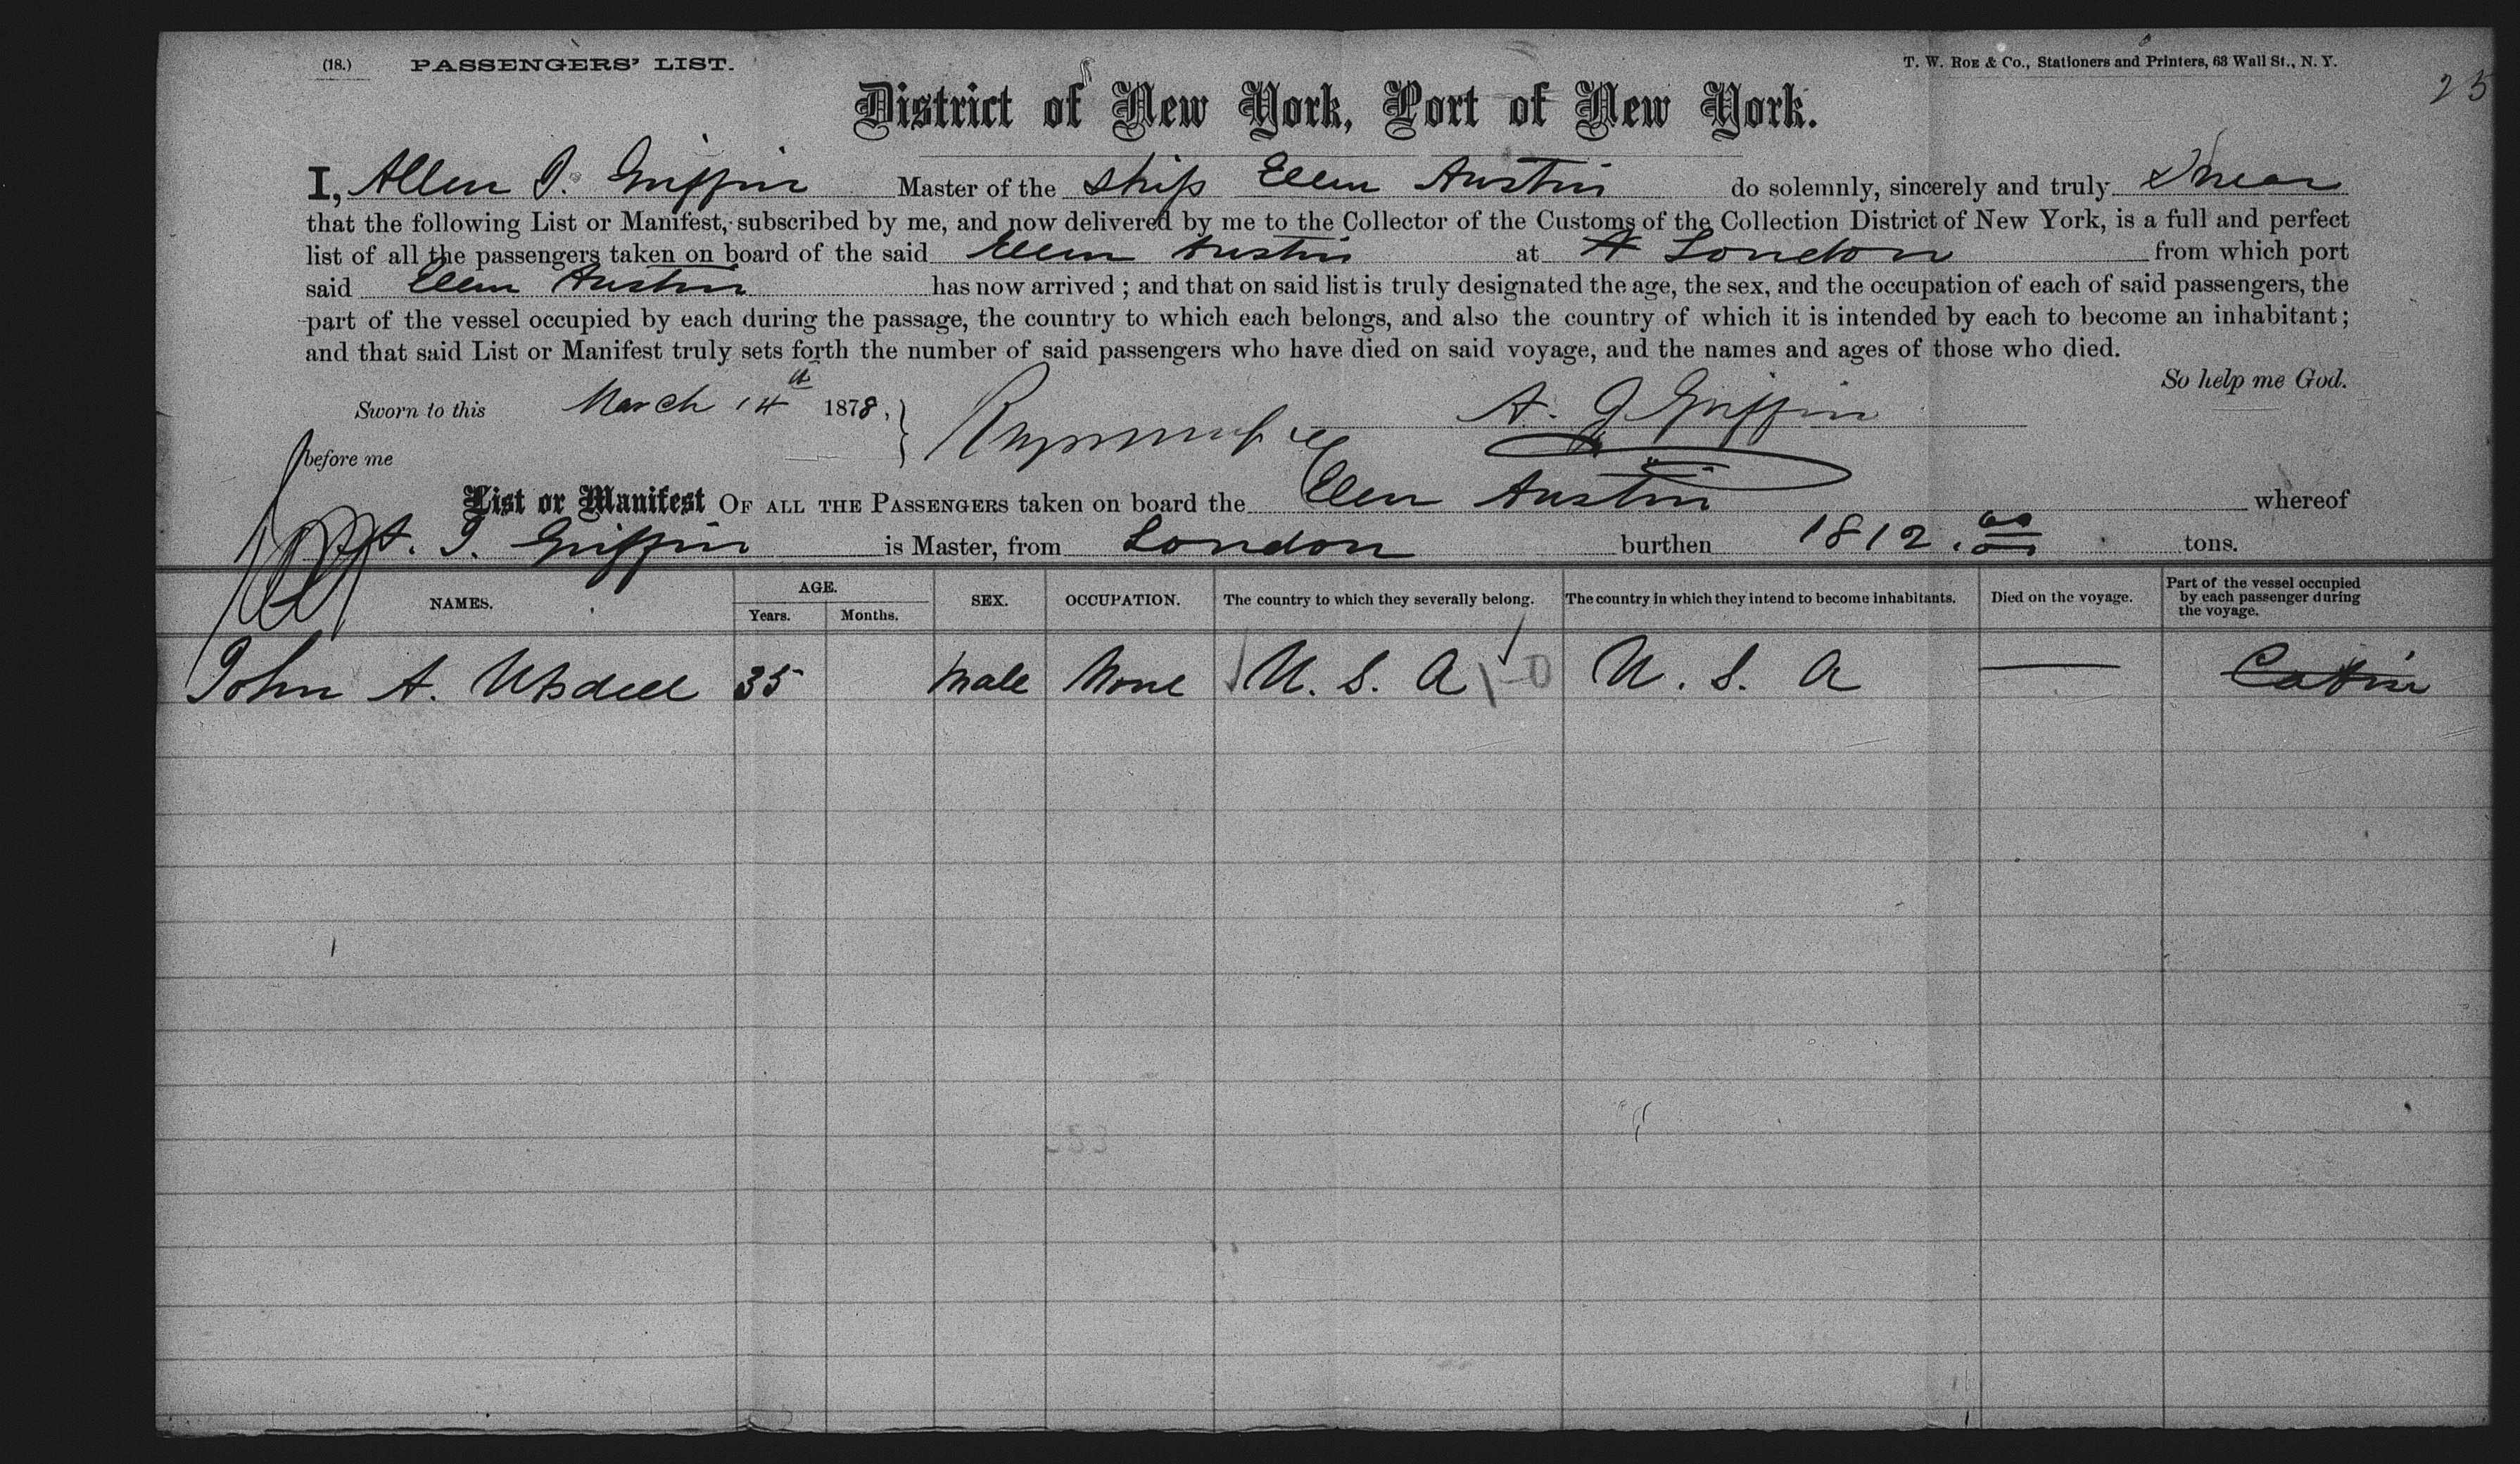 (18.) PASSENGERS' LIST.
T. W. ROE & Co., Stationers and Printers, 63 Wall St., N. Y.
25
District of New York, Port of New York.
I, Allen J. Griffin Master of the Ship Ellen Austin do solemnly, sincerely and truly Swear
that the following List or Manifest, subscribed by me, and now delivered by me to the Collector of the Customs of the Collection District of New York, is a full and perfect
list of all the passengers taken on board of the said Ellen Austin at London from which port
said Ellen Austin has now arrived; and that on said list is truly designated the age, the sex, and the occupation of each of said passengers, the
part of the vessel occupied by each during the passage, the country to which each belongs, and also the country of which it is intended by each to become an inhabitant;
and that said List or Manifest truly sets forth the number of said passengers who have died on said voyage, and the names and ages of those who died.
So help me God.
Sworn to this March 14th 1878,
A. J. Griffin
before me
List or Manifest OF ALL THE PASSENGERS taken on board the Ellen Austin whereof
A. J. Griffin is Master, from London burthen 1812. tons.
NAMES. AGE. Years. Months. SEX. OCCUPATION. The country to which they severally belong. The country in which they intend to become inhabitants. Died on the voyage. Part of the vessel occupied by each passenger during the voyage.
John A. 35 Male None U. S. A U. S. A — Cabin